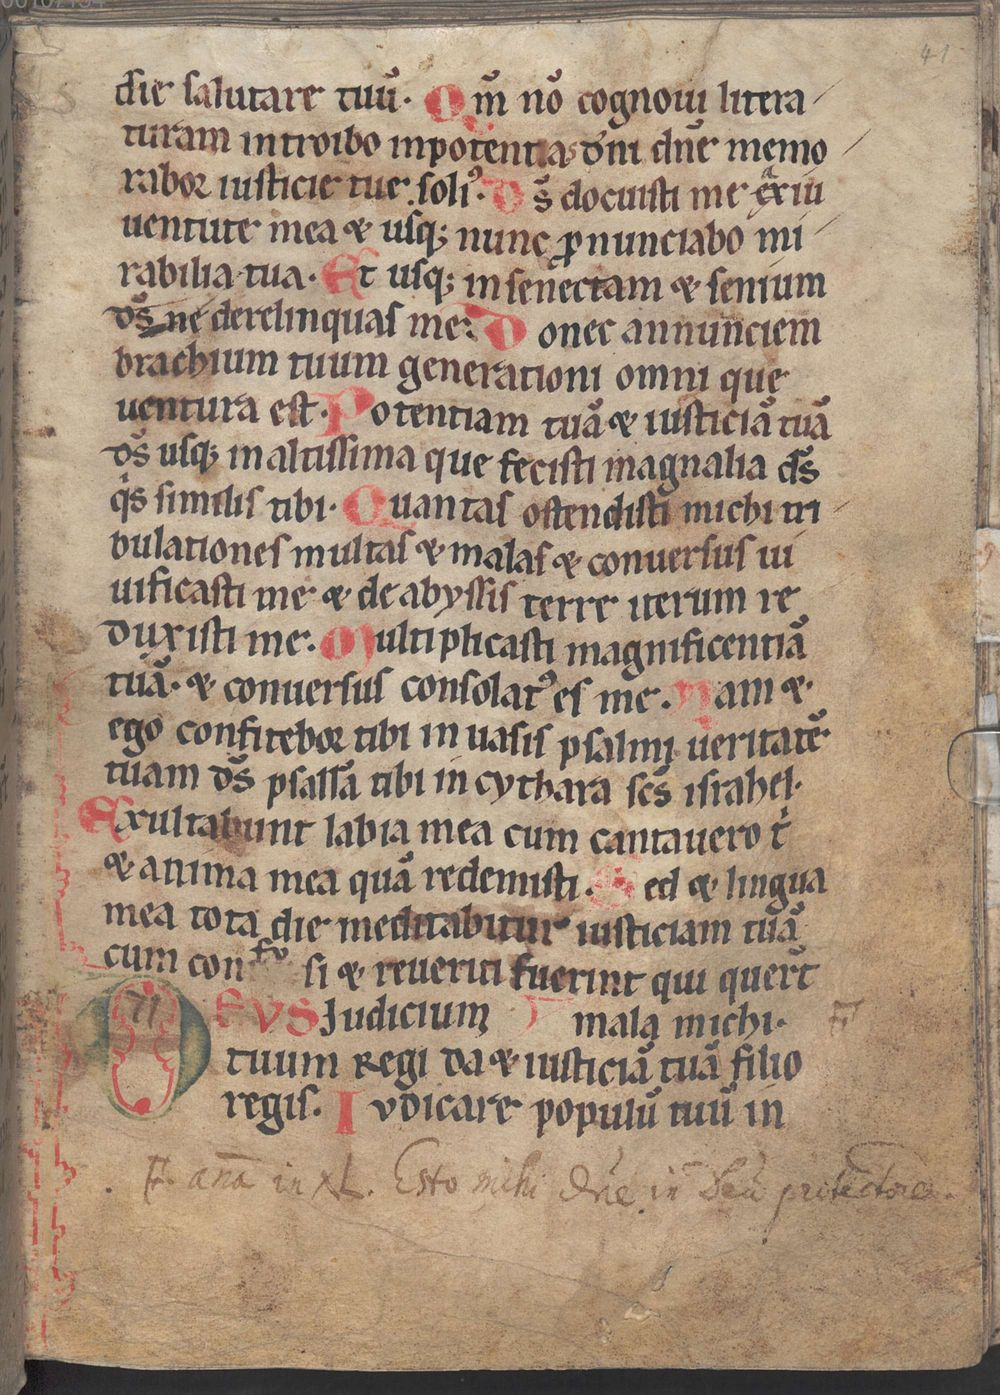 41
die salutare tuū. Qm̄ nō cognoui littera
turam introibo in potentias dn̄i dn̄e memo
rabor iusticie tue soliꝰ. Ds̄ docuisti me ex iu
uentute mea & usq; nunc ꝓnunciabo mi
rabilia tua. Et usq; in senectam & senium
ds̄ ne derelinquas me. Donec annunciem
brachium tuum generationi omni que
uentura est. Potentiam tuā & iusticiā tuā
ds̄ usq; in altissima que fecisti magnalia ds̄
q̇s similis tibi. Quantas ostendisti michi tri
bulationes multas & malas & conuersus ui
uificasti me & de abyssis terre iterum re
duxisti me. Multiplicasti magnificentiā
tuā. & conuersus consolatꝰ es me. Nam &
ego confitebor tibi in uasis psalmi ueritatē
tuam ds̄ psallā tibi in cythara scs̄ israhel.
Exultabunt labia mea cum cantauero ṫ
& anima mea quā redemisti. Sed & lingua
mea tota die meditabitur iusticiam tuā
cum confu si & reueriti fuerint qui querūt
71
DEVS Judicium mala michi.
tuum Regi da & iusticiā tuā filio
regis. Ivdicare populū tuū in
an̄a in XL. Esto mihi Dn̄e in Deū protectorē.